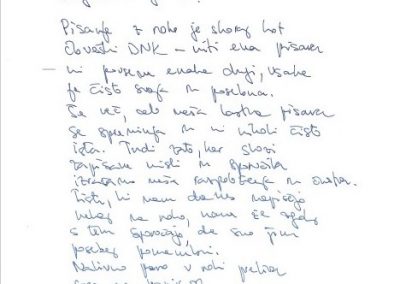 Pisanje z roko je skoraj kot
človeški DNK – niti ena pisava
ni povsem enaka drugi, vsaka
je čisto svoja in posebna.
Še več, celo naša lastna pisava
se spreminja in ni nikoli čisto
ista. Tudi zato, ker skozi
zapisane misli in sporočila
izražamo naša razpoloženja in
Tisti, ki nam danes napišejo
nekaj na roko, nam že
s tem sporočajo, da smo jim
posebej pomembni.
Nalivno pero v roki